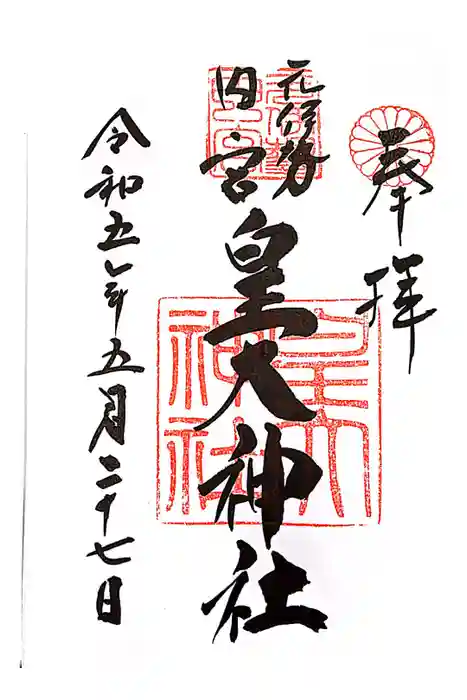 奉拝
元伊勢
内宮
皇大神社
皇大
神社
令和五年五月二十七日